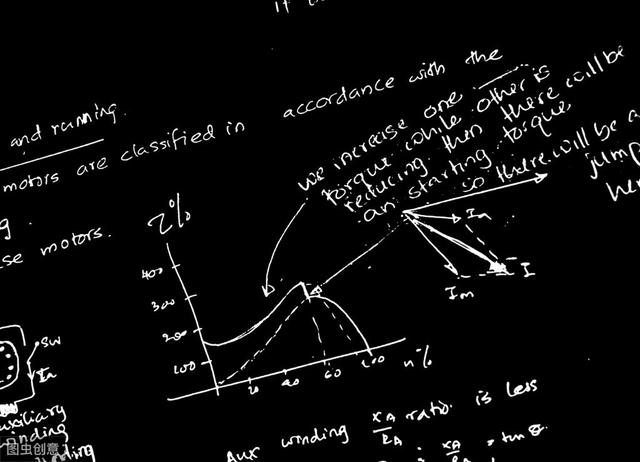 and running.
motors are classified in accordance with the
we increase one
torque while other is
reducing then there will be
an starting torque
so there will be a
jump
her
g.
se motors.
τ%
400
300
200
100
20
40
60
100
n%
Ia
Im
I
SW
Ia
auxiliary
winding
Aux winding XA/RA ratio is less
XA = tan θ
图虫创意